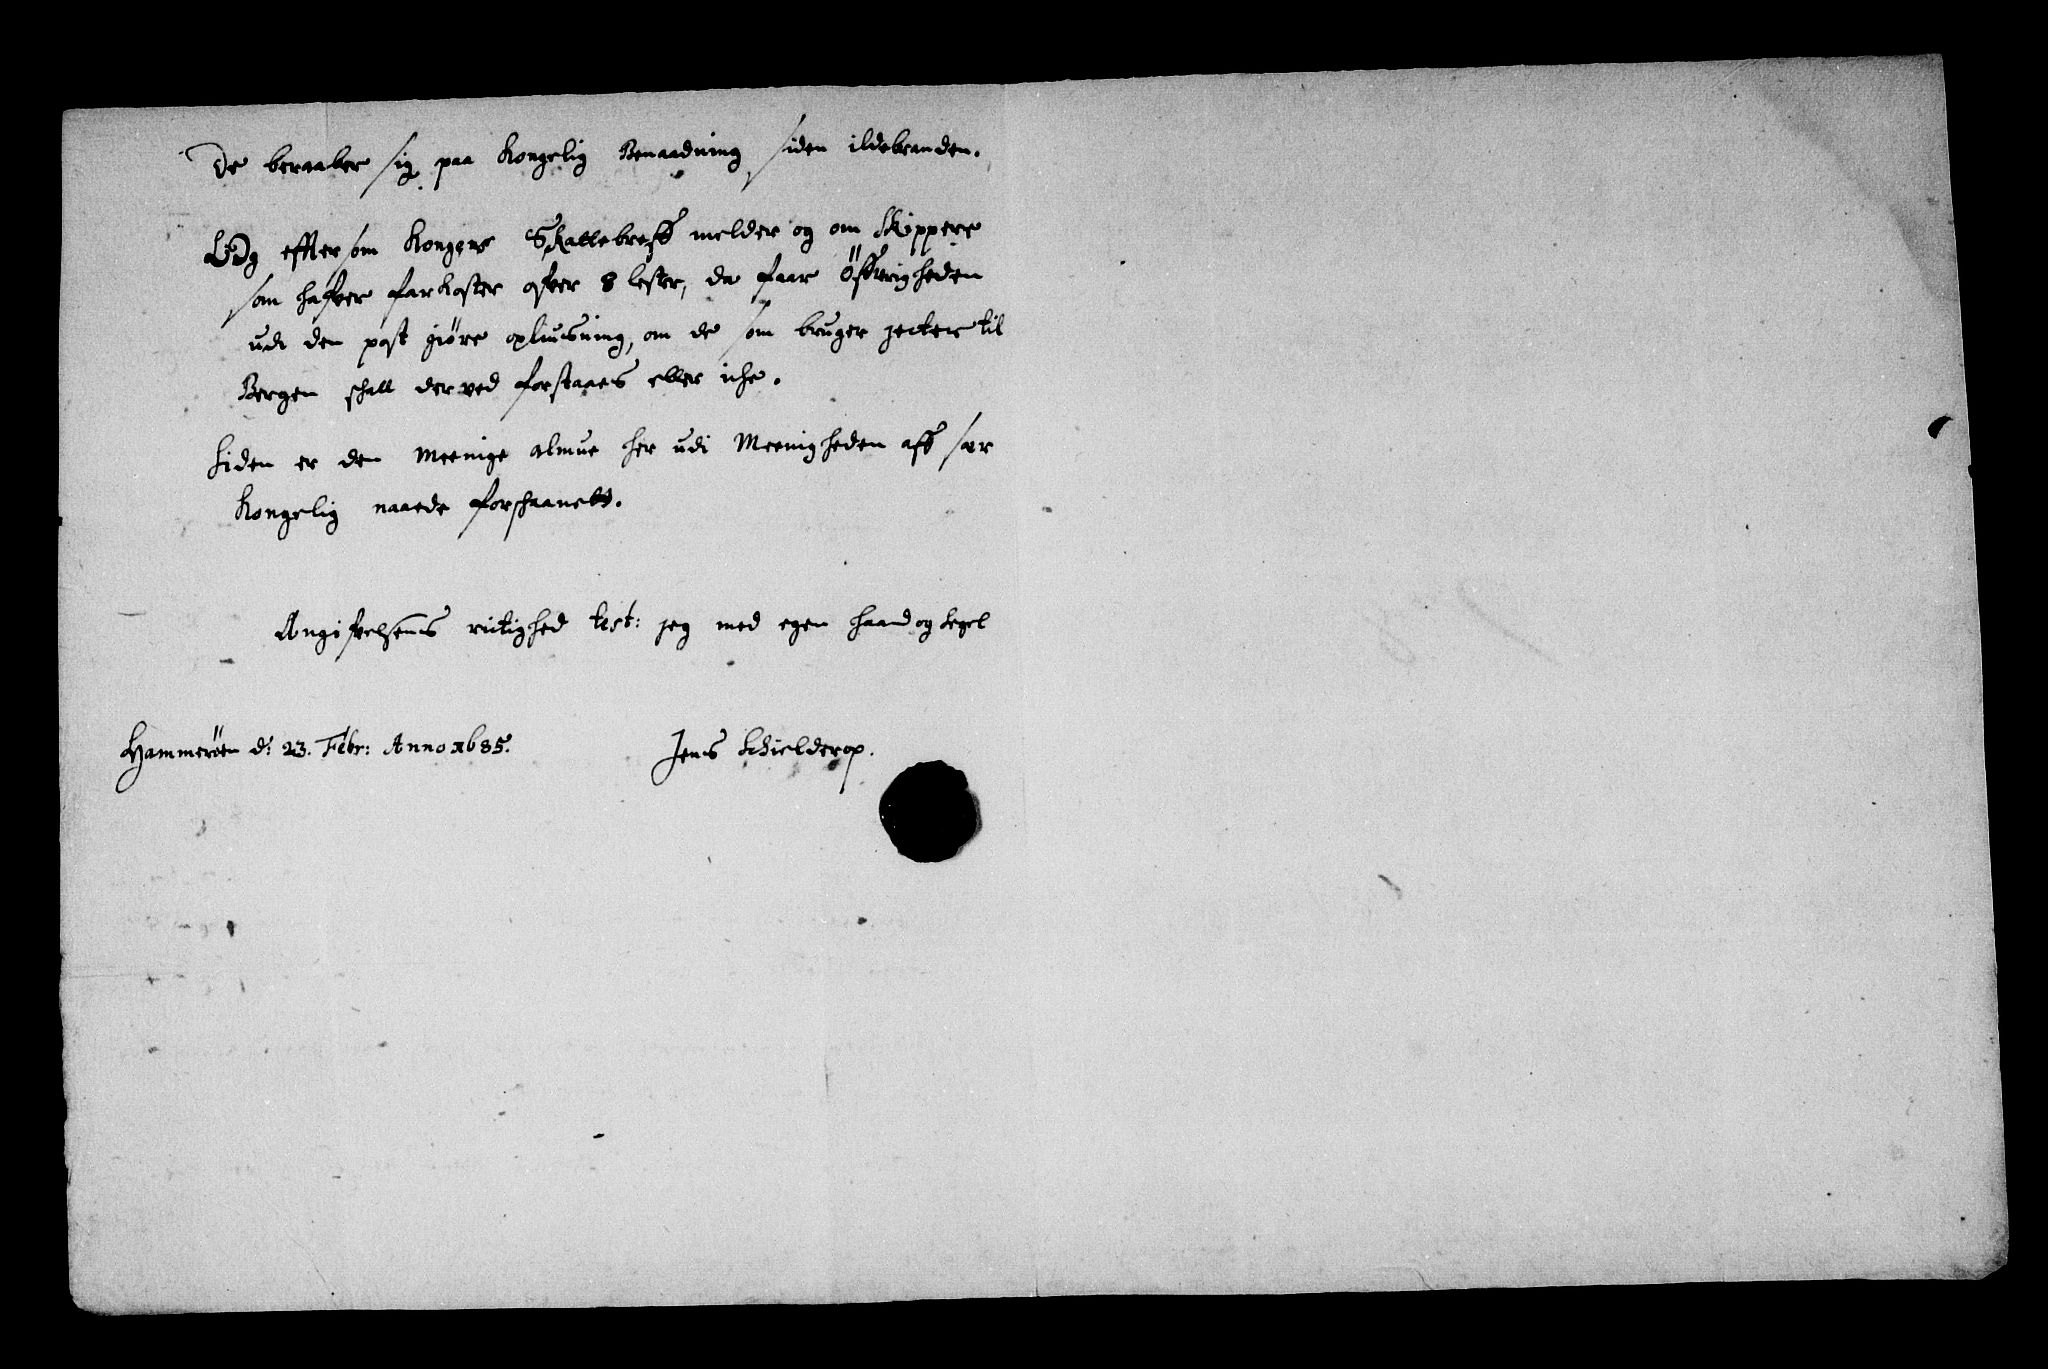 De beraaber sig paa Kongelig Benaadning siden ildebranden.
Og effter som Kongens Skattebreff melder og om Skippere
som hafver farkoster ofver 8 lester, da faar Öffverigheden
udi den post giöre opliusning, om de som bruger jecter til
Bergen schall der ved forstaaes eller iche.
Siden er den Meenige almue her udi Meenigheden aff sær
Kongelig naaede forschaanett.
Angifvelsens rictighed test: jeg med egen haand og Segel
Hammeröen d: 23. Febr: Anno 1685.
Jens Schielderop.